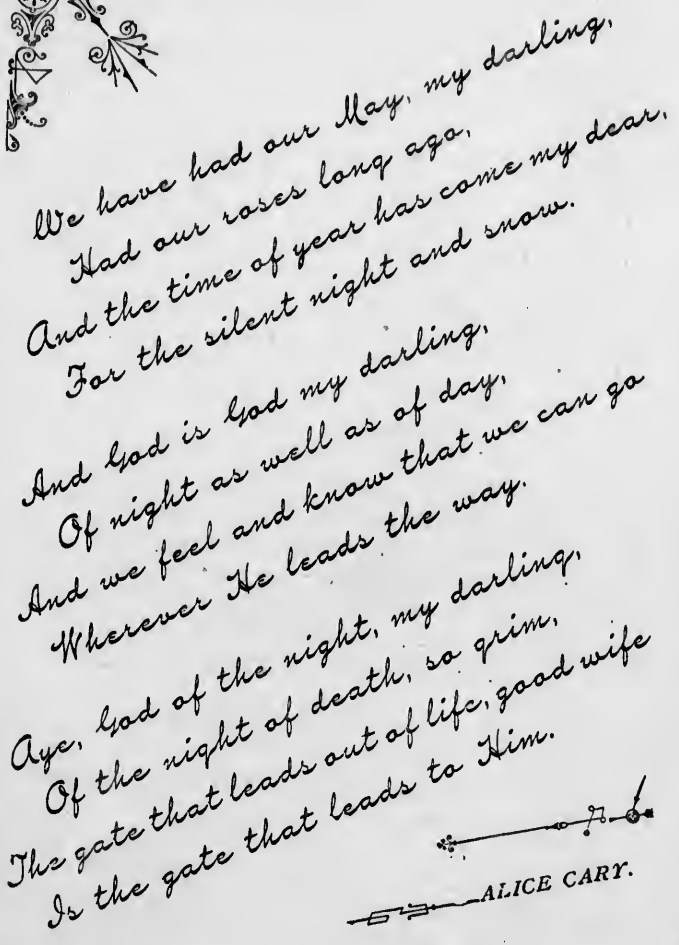 We have had our May, my darling,
Had our roses long ago,
And the time of year has come my dear,
For the silent night and snow.
And God is God my darling,
Of night as well as of day,
And we feel and know that we can go
Wherever He leads the way.
Aye, God of the night, my darling,
Of the night of death, so grim,
The gate that leads out of life, good wife
Is the gate that leads to Him.
ALICE CARY.